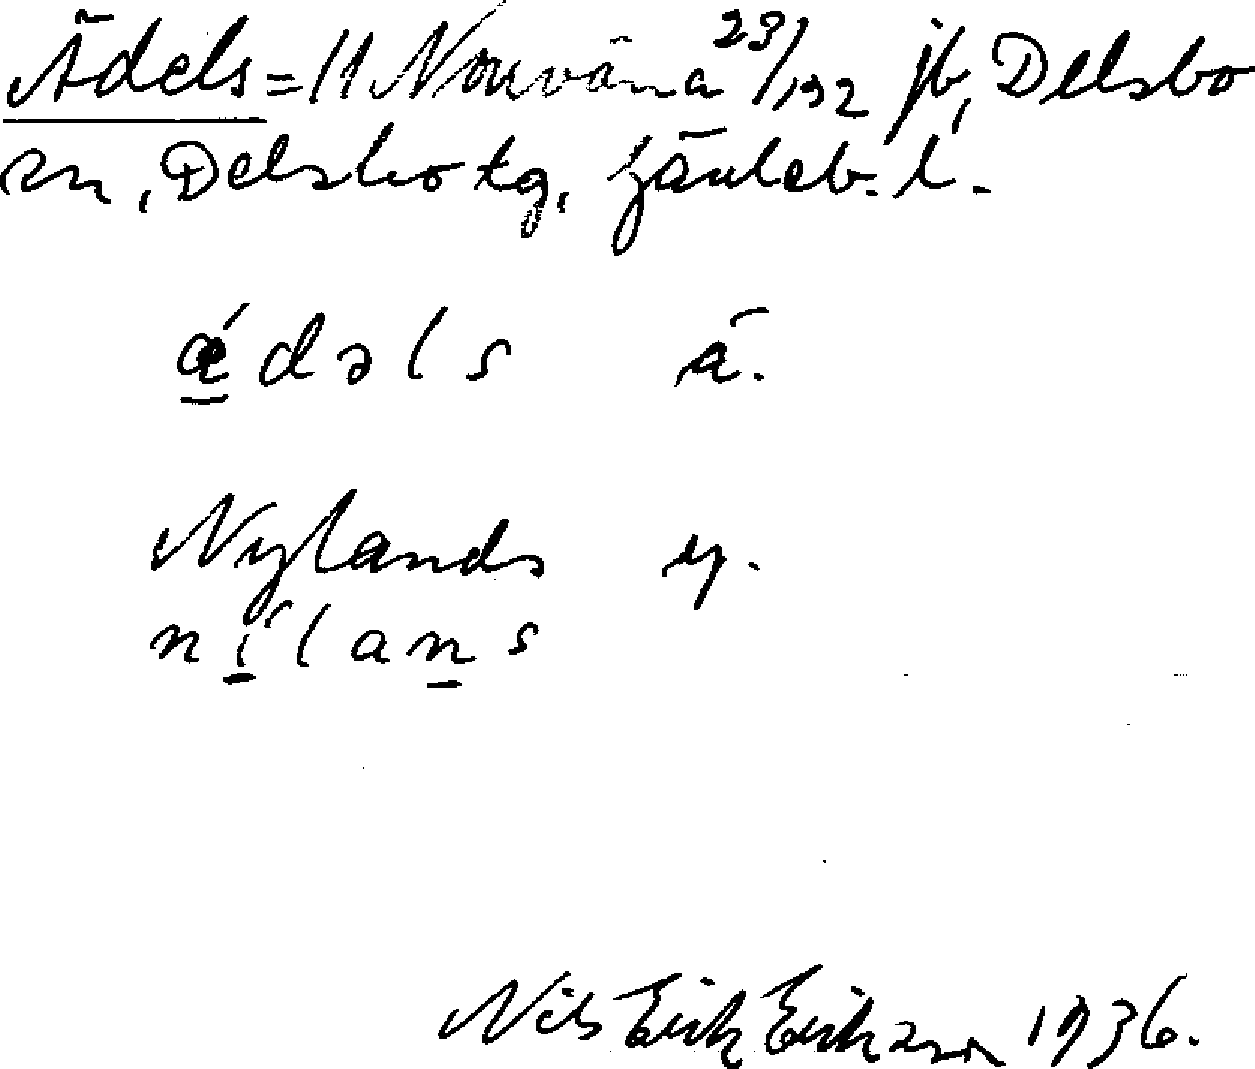 Ädels = 11 Norrväna 23/192 jb, Delsbo
sn, Delsbo tg, Gävleb. l.
ǽdəls ä.
Nylands y.
nílans
Nils Erik Eriksson 1936.